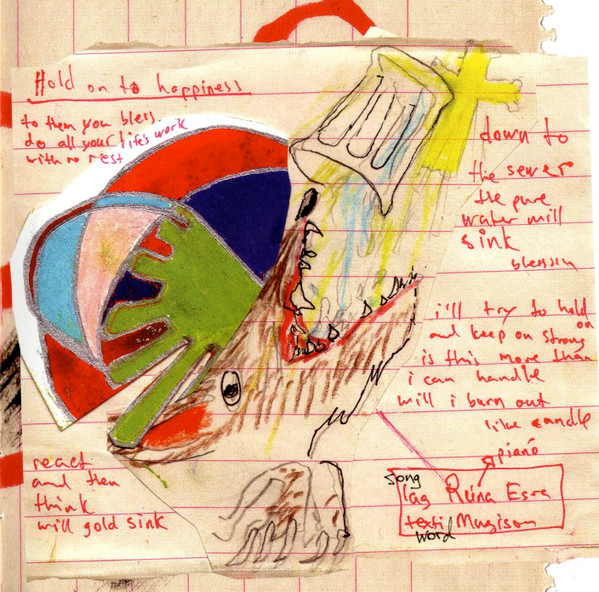 Hold on to happiness
to them you bless
do all your life's work
with no rest
down to
the sewer
the pure
water will
sink
blessin
i'll try to hold on
and keep on strong
is this more than
i can handle
will i burn out
like candle
piano
react
and then
think
will gold sink
song
lag Rúna Esra
texti Mugison
word